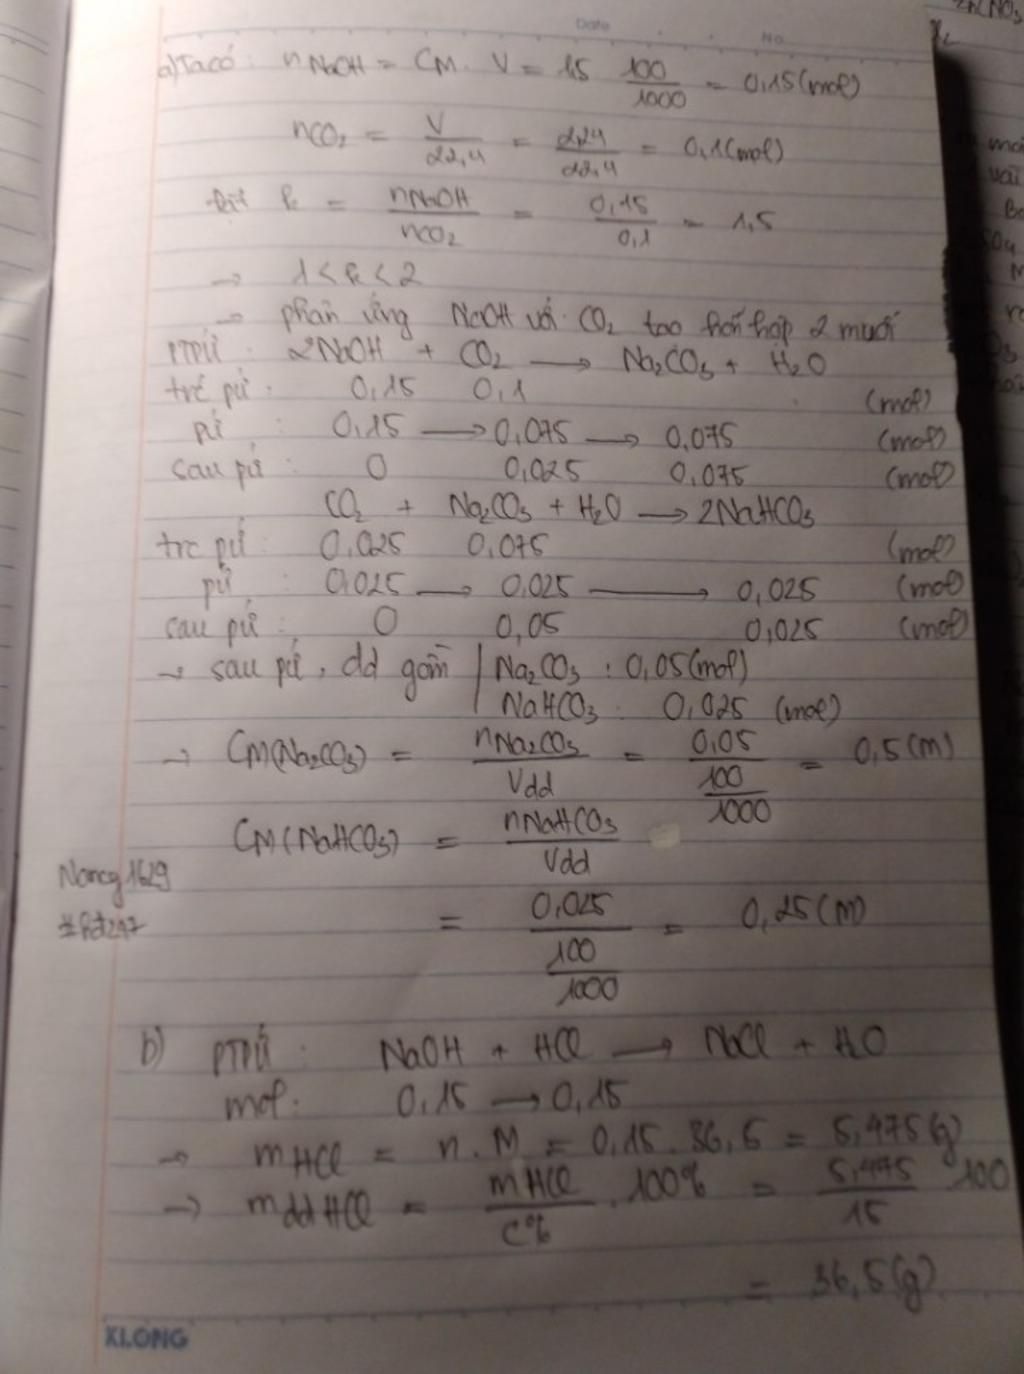 Date No.
a) Ta có: nNaOH = CM. V = 1,5 100/1000 = 0,15 (mol)
nCO2 = V/22,4 = 2,24/22,4 = 0,1 (mol)
đặt k = nNaOH/nCO2 = 0,15/0,1 = 1,5
→ 1<k<2
→ phản ứng NaOH với CO2 tạo hỗn hợp 2 muối
PTPỨ: 2NaOH + CO2 → Na2CO3 + H2O
trc pứ: 0,15 0,1 (mol)
pứ: 0,15 → 0,075 → 0,075 (mol)
sau pứ: 0 0,025 0,075 (mol)
CO2 + Na2CO3 + H2O → 2NaHCO3
trc pứ: 0,025 0,075 (mol)
pứ: 0,025 → 0,025 → 0,025 (mol)
sau pứ: 0 0,05 0,025 (mol)
→ sau pứ, dd gồm | Na2CO3: 0,05 (mol)
NaHCO3: 0,025 (mol)
→ CM(Na2CO3) = nNa2CO3/Vdd = 0,05/(100/1000) = 0,5 (M)
CM(NaHCO3) = nNaHCO3/Vdd
Nancy1629
= 0,025/(100/1000) = 0,25 (M)
b) PTPỨ: NaOH + HCl → NaCl + H2O
mol: 0,15 → 0,15
→ mHCl = n.M = 0,15.36,5 = 5,475 (g)
→ mddHCl = mHCl/C% .100% = 5,475/15 100
= 36,5 (g)
KLONG